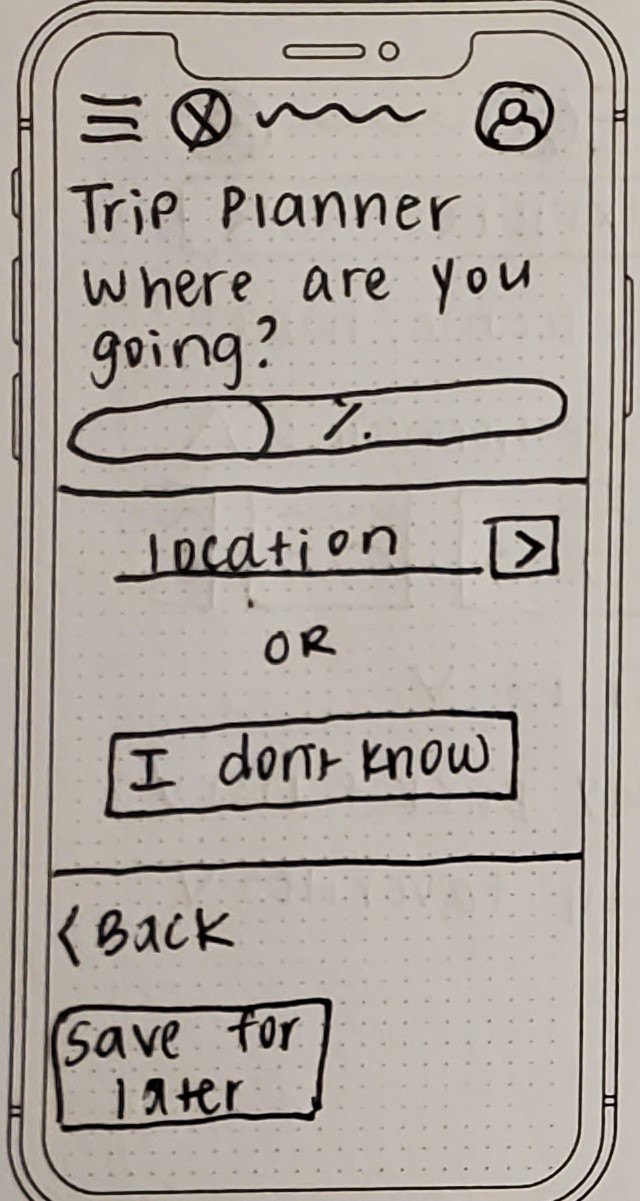 Trip Planner
Where are you
going?
%
location
>
OR
I don't know
< Back
Save for
later